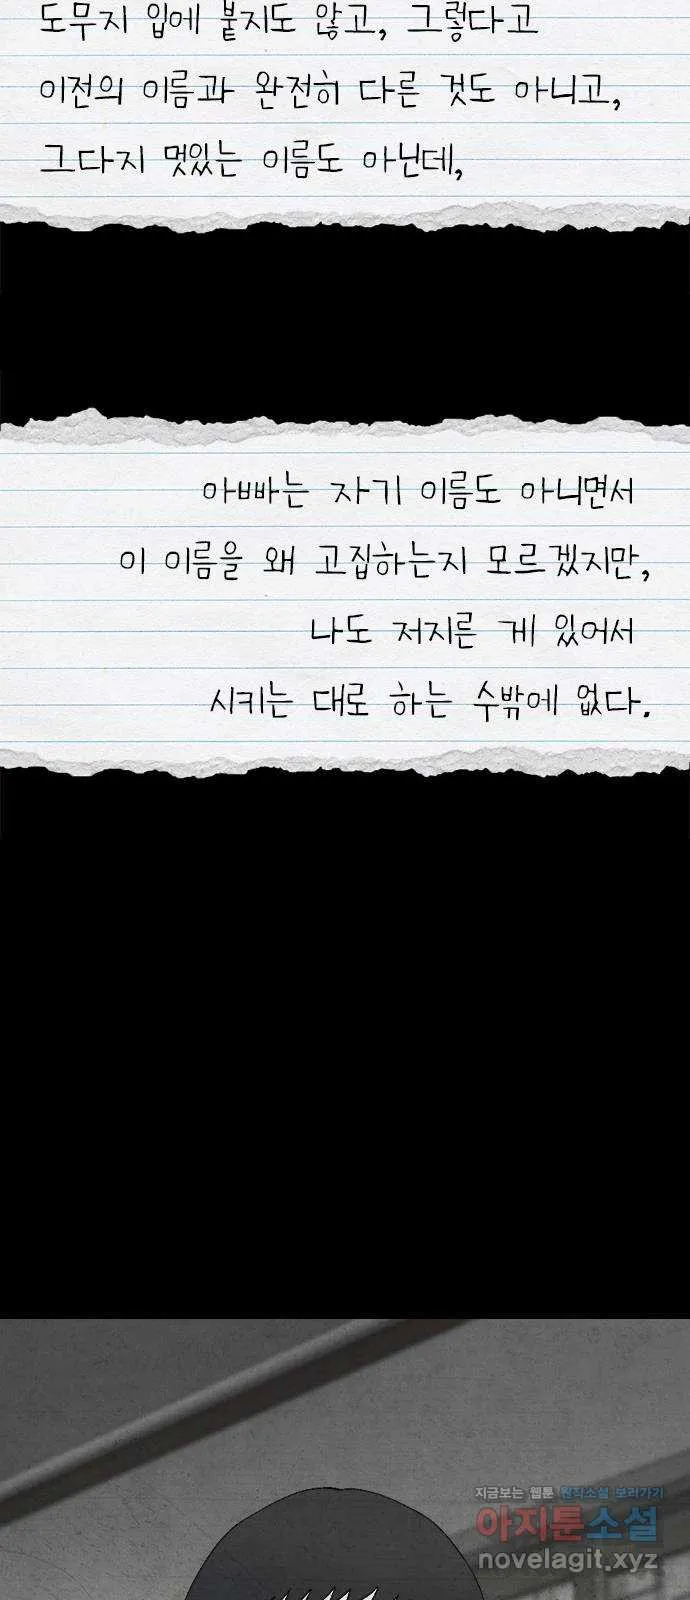 도무지 입에 붙지도 않고, 그렇다고
이전의 이름과 완전히 다른 것도 아니고,
그다지 멋있는 이름도 아닌데,
아빠는 자기 이름도 아니면서
이 이름을 왜 고집하는지 모르겠지만,
나도 저지른 게 있어서
시키는 대로 하는 수밖에 없다.
지금보는 웹툰 원작소설 보러가기
아지툰소설
novelagit.xyz